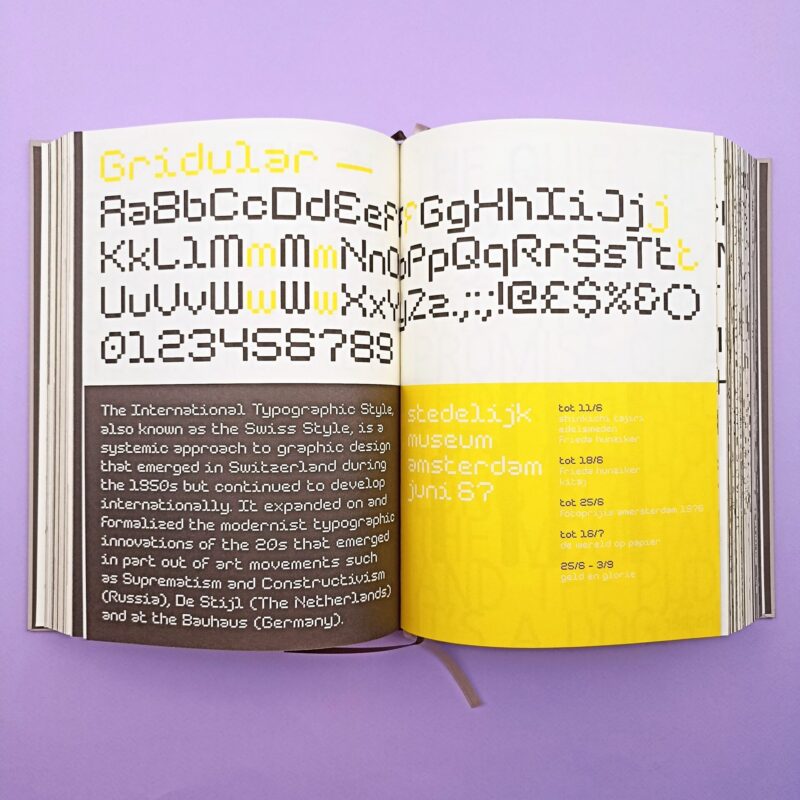 Gridular —
AaBbCcDdEeFffGgHhIiJjj
KkLlMmMmNnOoPpQqRrSsTtt
UuVvWwWwXxYyZz.,:;!@£$%&O
0123456789
The International Typographic Style,
also known as the Swiss Style, is a
systemic approach to graphic design
that emerged in Switzerland during
the 1950s but continued to develop
internationally. It expanded on and
formalized the modernist typographic
innovations of the 20s that emerged
in part out of art movements such
as Suprematism and Constructivism
(Russia), De Stijl (The Netherlands)
and at the Bauhaus (Germany).
stedelijk
museum
amsterdam
juni 67
tot 11/6
shinkichi tajiri
edelsmeden
frieda hunziker
tot 18/6
frieda hunziker
kitaj
tot 25/6
amersterdam
tot 16/7
de wereld op papier
25/6 - 3/9
geld en glorie